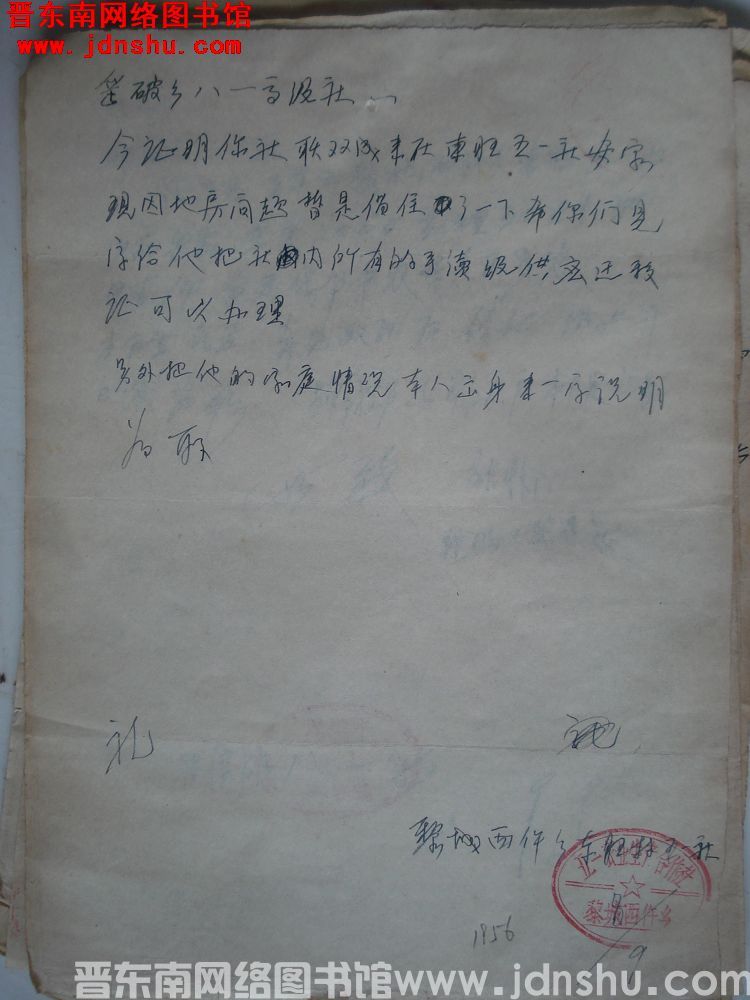 晋东南网络图书馆
www.jdnshu.com
破乡八一高级社
今证明你社联双成来在东旺五一社安家
现因地房问题暂是借住了一下希你们见
字给他把社内所有的手续级供应迁移
证可以办理
另外把他的家庭情况本人出身来一字说明
为盼
礼
黎城西仵乡东旺村五一社
五一农业生产合作社
黎城西仵乡
1956
9
晋东南网络图书馆www.jdnshu.com